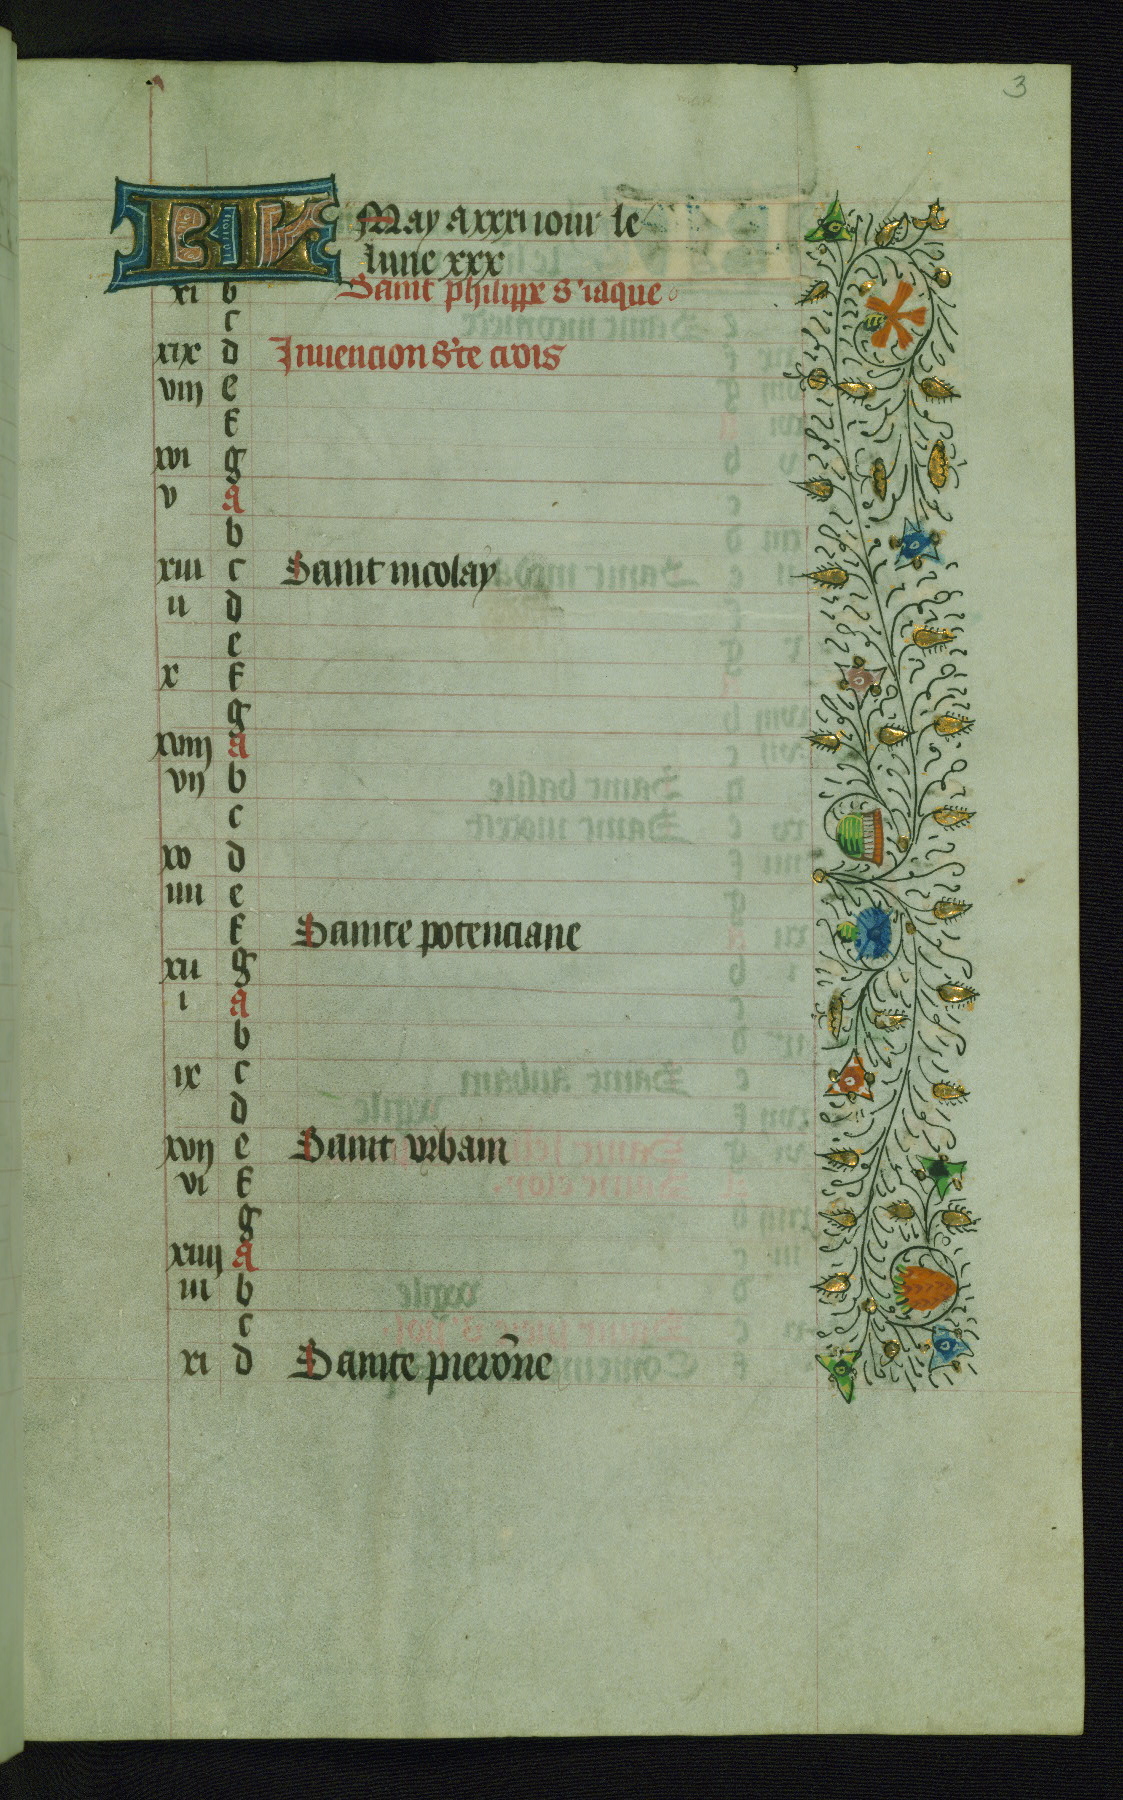 3
KL May a xxxi iour le
lune xxx
xi b Saint philippe s' iaque
c
xix d Inuencion s'te crois
viij e
f
xvi g
v A
b
xiii c Saint nicolay
ii d
e
x f
g
xviij A
vij b
c
xv d
iiii e
f Sainte potenciane
xii g
i A
b
ix c
d
xvij e Saint vrbain
vi f
g
xiiij A
iii b
c
xi d Sainte pierōne